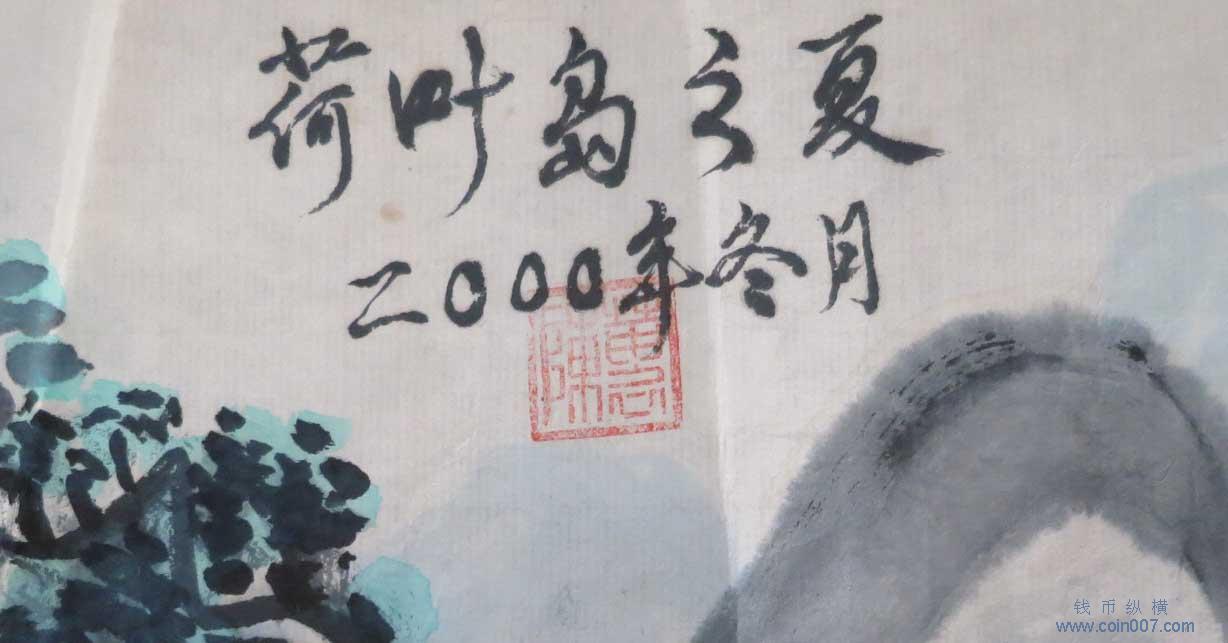 荷叶岛之夏
二000年冬月
钱币纵横
www.coin007.com